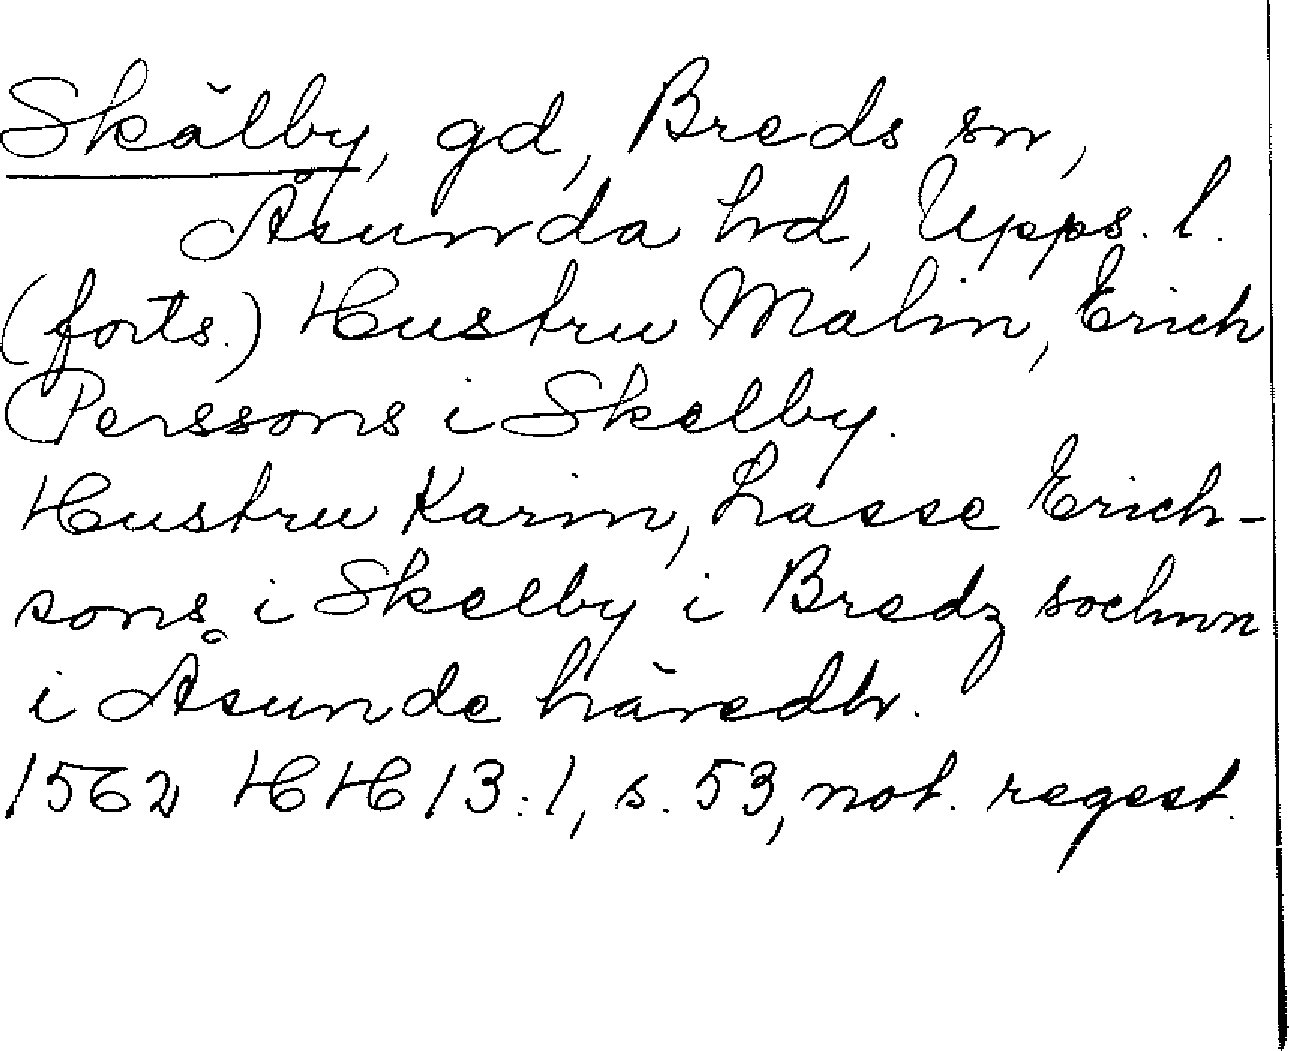 Skälby, gd, Breds sn,
Åsunda hd, Upps. l.
(forts.) Hustru Malin, Erich
Perssons i Skelby.
Hustru Karin, Lasse Erich-
sons i Skelby i Bredz sochnn
i Åsunde häredh.
1562 HH 13:1, s. 53, not. regest.